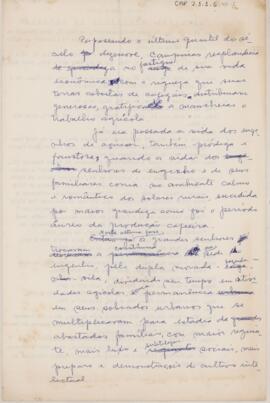 CMP 2.1.2.6
Esposendo o último quartel do sé-
culo dezenove, Campinas resplandecia
no fastígio de sua vida
econômica com a riqueza que suas
terras cobertas de cafezais distribuiam
generosas, gratificando a mancheias o
trabalho agrícola.
Já era passada a vida dos enge-
nhos de açúcar, também pródiga e
faustosa, quando a vida dos
senhores de engenho e de seus
familiares corria no ambiente calmo
e romântico dos solares rurais, excedida
por maior grandeza como foi o período
áureo da produção cafeeira.
Nesta última fase, os grandes senhores
trocaram a sede do
engenho pela dupla morada
vila, dividindo seu tempo em ativi-
dades agrícolas e permanência
em seus sobrados urbanos que se
multiplicavam para estadia de
abastadas famílias, com maior requin-
te mais luxo e sociais, maior
preparo e demonstração de cultura inte-
lectual.